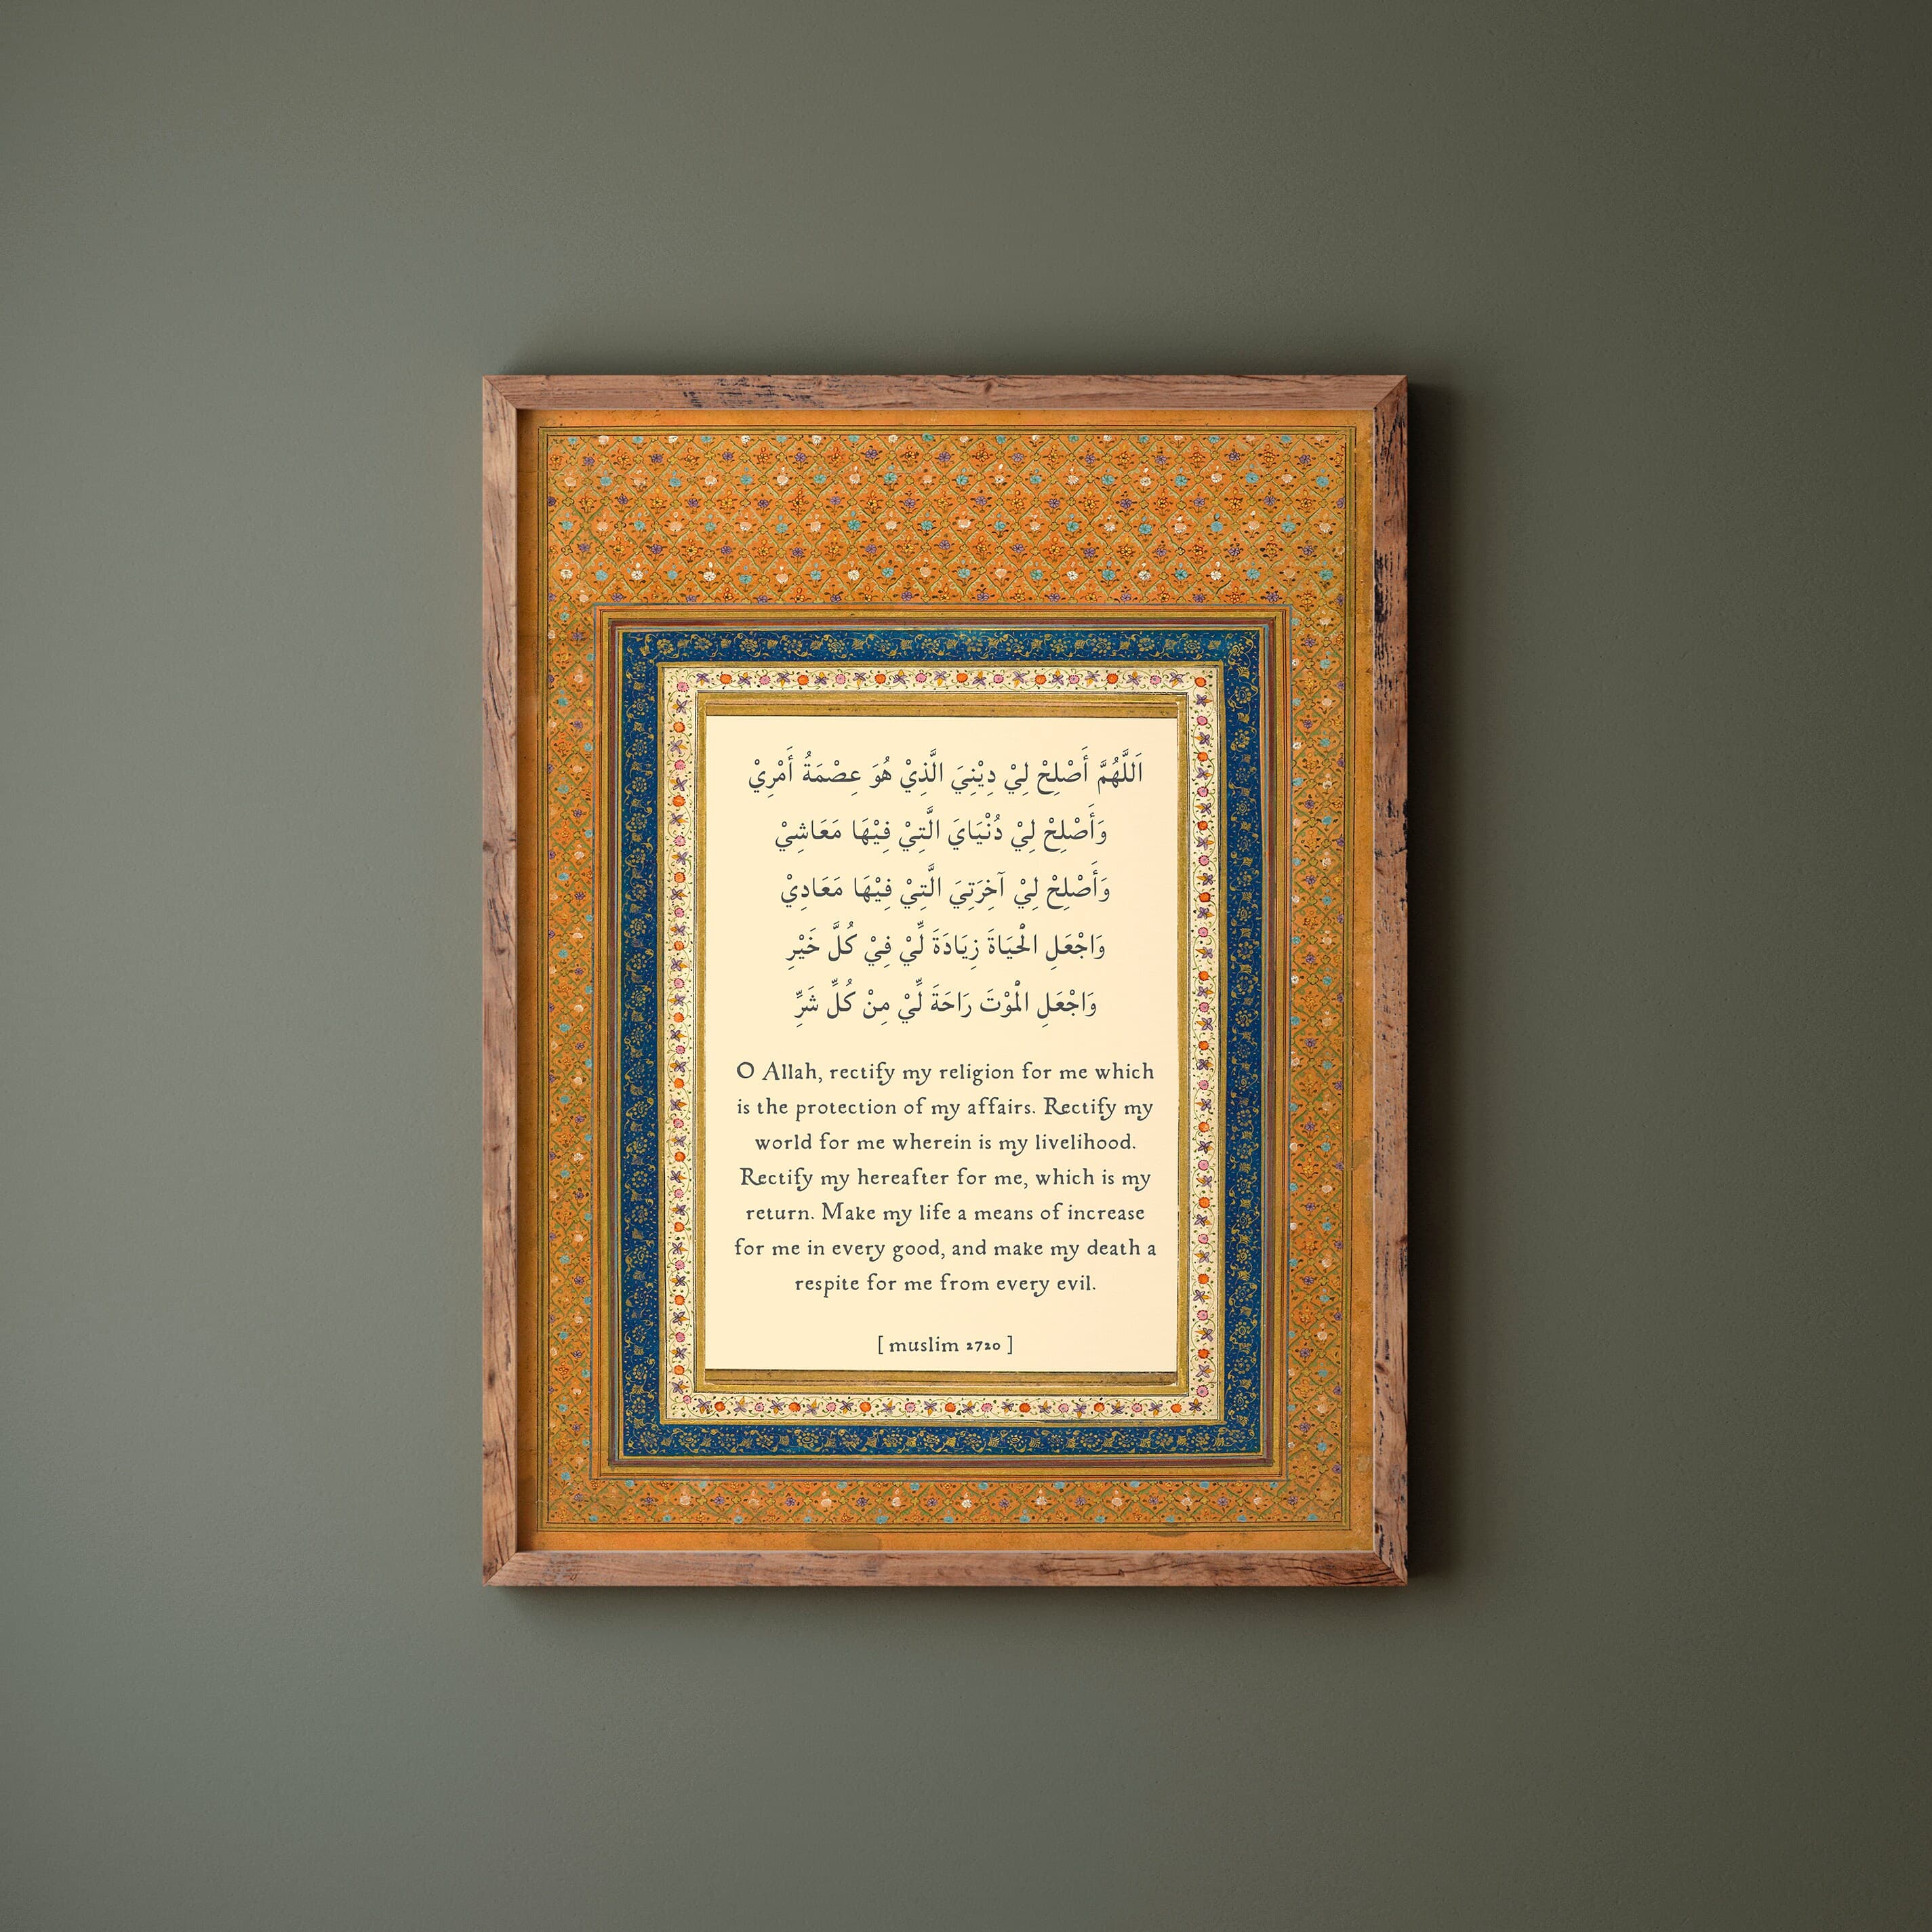 اَللَّهُمَّ أَصْلِحْ لِيْ دِيْنِيَ الَّذِيْ هُوَ عِصْمَةُ أَمْرِيْ
وَأَصْلِحْ لِيْ دُنْيَايَ الَّتِيْ فِيْهَا مَعَاشِيْ
وَأَصْلِحْ لِيْ آخِرَتِيَ الَّتِيْ فِيْهَا مَعَادِيْ
وَاجْعَلِ الْحَيَاةَ زِيَادَةَ لِّيْ فِيْ كُلَّ خَيْرِ
وَاجْعَلِ الْمَوْتَ رَاحَةَ لِّيْ مِنْ كُلِّ شَرٍّ
O Allah, rectify my religion for me which
is the protection of my affairs. Rectify my
world for me wherein is my livelihood.
Rectify my hereafter for me, which is my
return. Make my life a means of increase
for me in every good, and make my death a
respite for me from every evil.
[ muslim 2720 ]